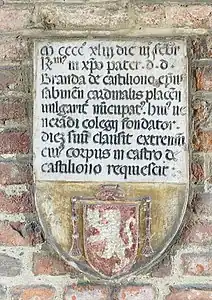 M cccc xliij die iij febr
R.mꝰ in xpo pater . d . d .
Branda de castiliono epus
sabinen cardinalis placen
vulgarit nucupatꝰ . huiꝰ ue
nerādi colegii fondator .
diez suū clausit extremū
cuiꝰ corpus in castro de
castiliono requiescit .